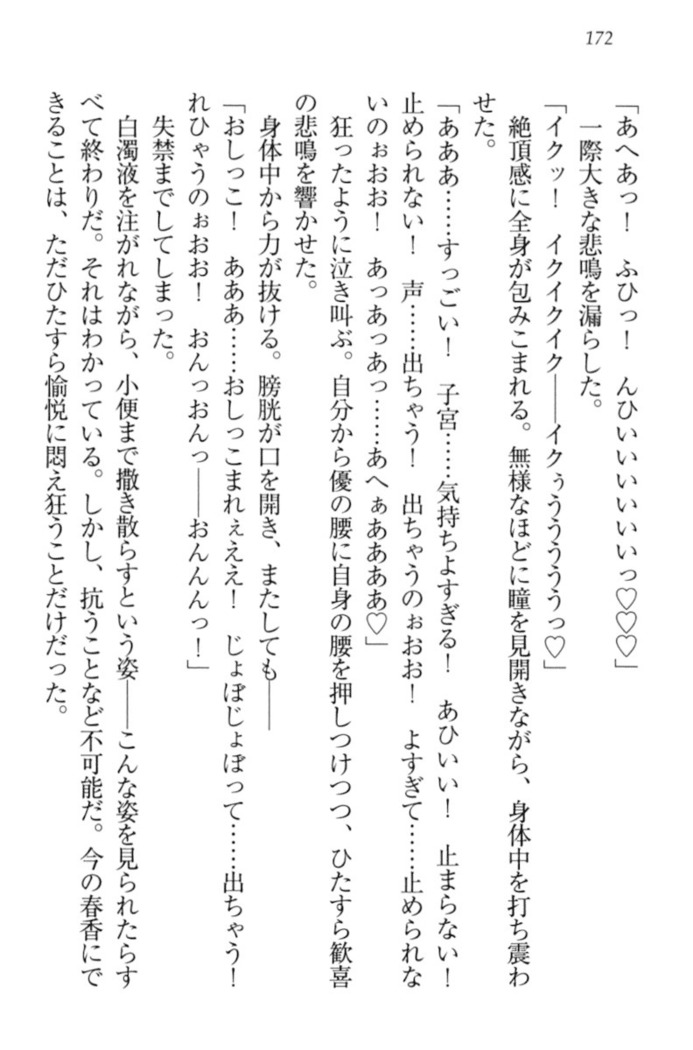 172
「あへあっ！　ふひっ！　んひいいいいいいっ♡♡♡」
一際大きな悲鳴を漏らした。
「イクッ！　イクイクイク――イクぅうううううっ♡」
絶頂感に全身が包みこまれる。無様なほどに瞳を見開きながら、身体中を打ち震わ
せた。
「あああ……すっごい！　子宮……気持ちよすぎる！　あひいい！　止まらない！
止められない！　声……出ちゃう！　出ちゃうのぉおお！　よすぎて……止められな
いのぉおお！　あっあっあっ……あへぁああああ♡」
狂ったように泣き叫ぶ。自分から優の腰に自身の腰を押しつけつつ、ひたすら歓喜
の悲鳴を響かせた。
身体中から力が抜ける。膀胱が口を開き、またしても――
「おしっこ！　あああ……おしっこまれぇええ！　じょぼじょぼって……出ちゃう！
れひゃうのぉおお！　おんっおんっ――おんんんっ！」
失禁までしてしまった。
白濁液を注がれながら、小便まで撒き散らすという姿――こんな姿を見られたらす
べて終わりだ。それはわかっている。しかし、抗うことなど不可能だ。今の春香にで
きることは、ただひたすら愉悦に悶え狂うことだけだった。